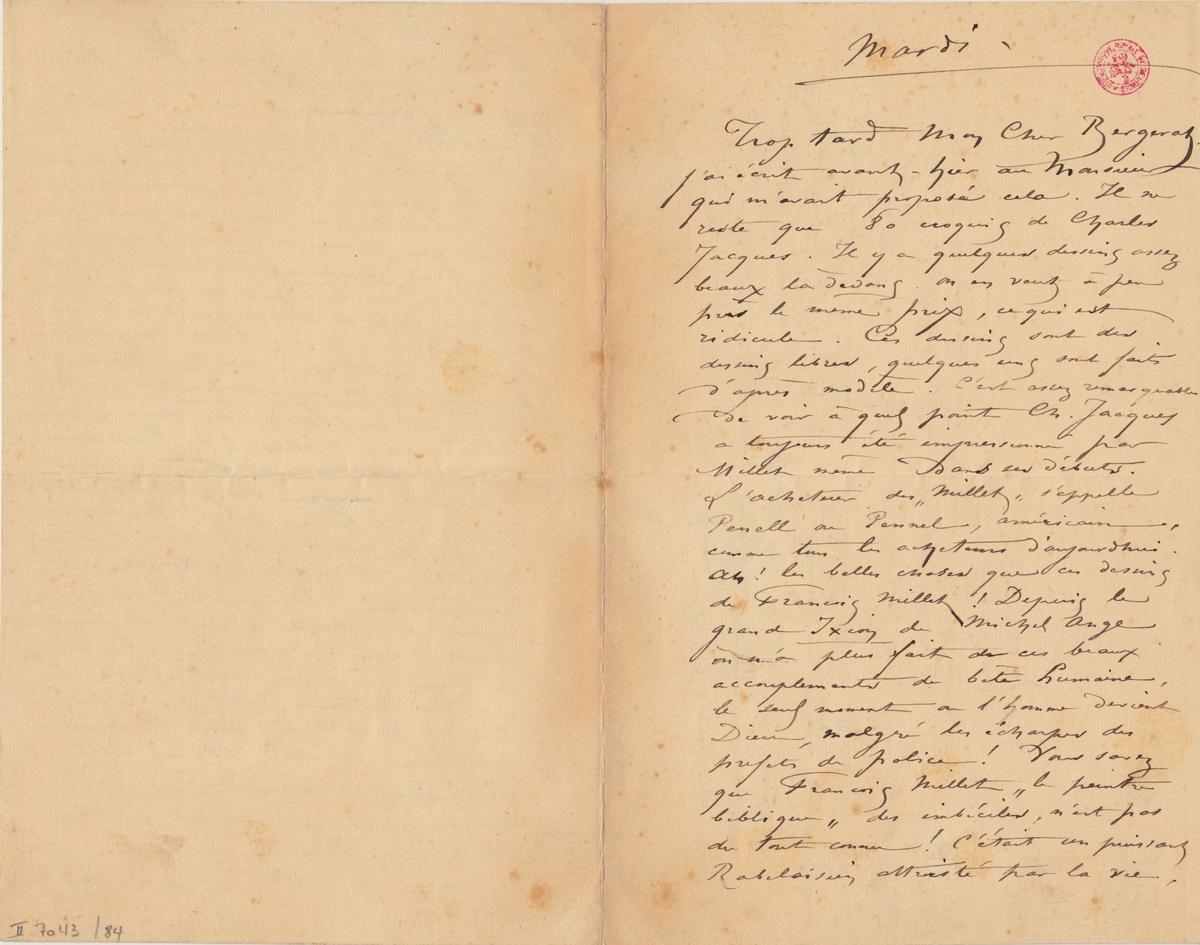 Mardi -
Trop tard Mon Cher Bergerat,
j'ai écrit avant-hier au Monsieur
qui m'avait proposé cela. Il ne
reste que 80 croquis de Charles
Jacques. Il y a quelques dessins assez
beaux là dedans. on en veut à peu
près le même prix, ce qui est
ridicule. Ces dessins sont des
dessins libres, quelques uns sont faits
d'après modèle. C'est assez remarquable
de voir à quel point Ch. Jacques
a toujours été impressionné par
Millet même dans ses débuts.
L'acheteur des „Millet„ s'appelle
Penell ou Pennel, américain,
comme tous les acheteurs d'aujourdhui.
Ah! les belles choses que ces dessins
de François Millet! Depuis le
grand Ixion de Michel Ange
on n'a plus fait de ces beaux
accouplements de bête humaine,
le seul moment ou l'homme devient
Dieu, malgré les écharpes des
préfets de police! Vous savez
que François Millet „le peintre
biblique„ des imbéciles, n'est pas
du tout connu! C'était un puissant
Rabelaisien attristé par la vie,
II 7043 /84